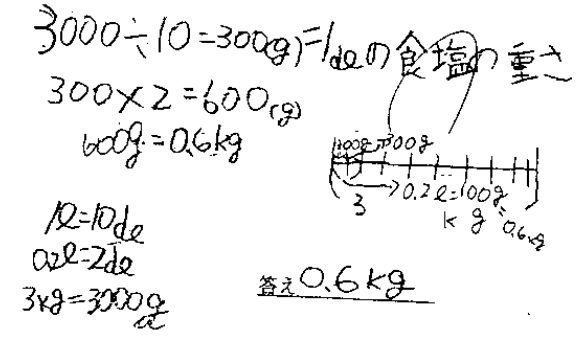 3000÷10=300(g)=1dlの食塩の重さ
300×2=600(g)
600g=0.6kg
300g
3
0.2l=
0.6kg
1l=10dl
0.2l=2dl
3kg=3000g
答え0.6kg